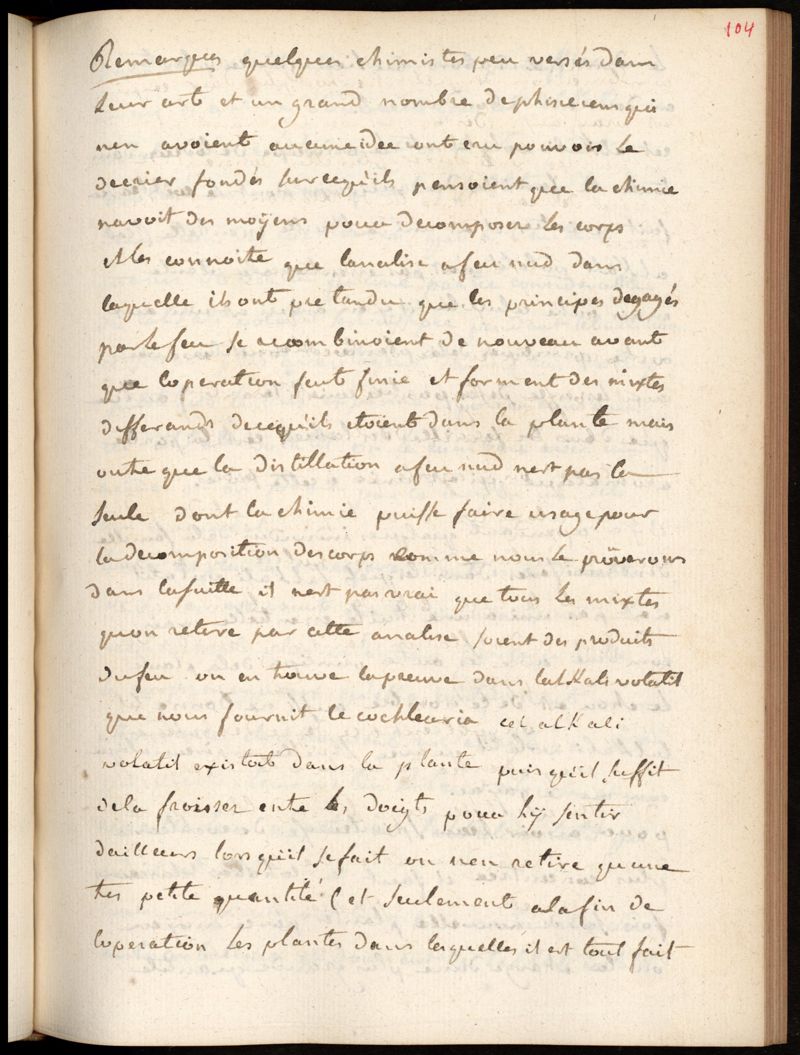 104
Remarques quelques chimistes peu versés dans
leur art et un grand nombre de phisiciens qui
nen avoient aucune idee ont cru pouvoir le
decrier fondés sur cequ'ils pensoient que la chimie
navoit des moÿens pour decomposer les corps
et les connoitre que lanalise a feu nud dans
laquelle ils ont pretandu que les principes degagés
par le feu se recombinoient de nouveau avant
que loperation feut finie et forment des mixtes
differands de cequ'ils etoient dans la plante mais
outre que la distillation a feu nud nest pas la
seule dont la chimie puisse faire usage pour
la decomposition des corps comme nous le pröverons
dans lasuitte il nest pas vrai que tous les mixtes
quon retire par cette analise soient des produits
du feu on en trouve la preuve dans lalkali volatil
que nous fournit le cochlearia cet alkali
volatil existoit dans la plante puis qu'il suffit
dela froisser entre les doigts pour lÿ sentir
dailleurs lorsquil se fait on nen retire quune
tres petite quantité (et seulement a la fin de
loperation les plantes dans lesquelles il est tout fait